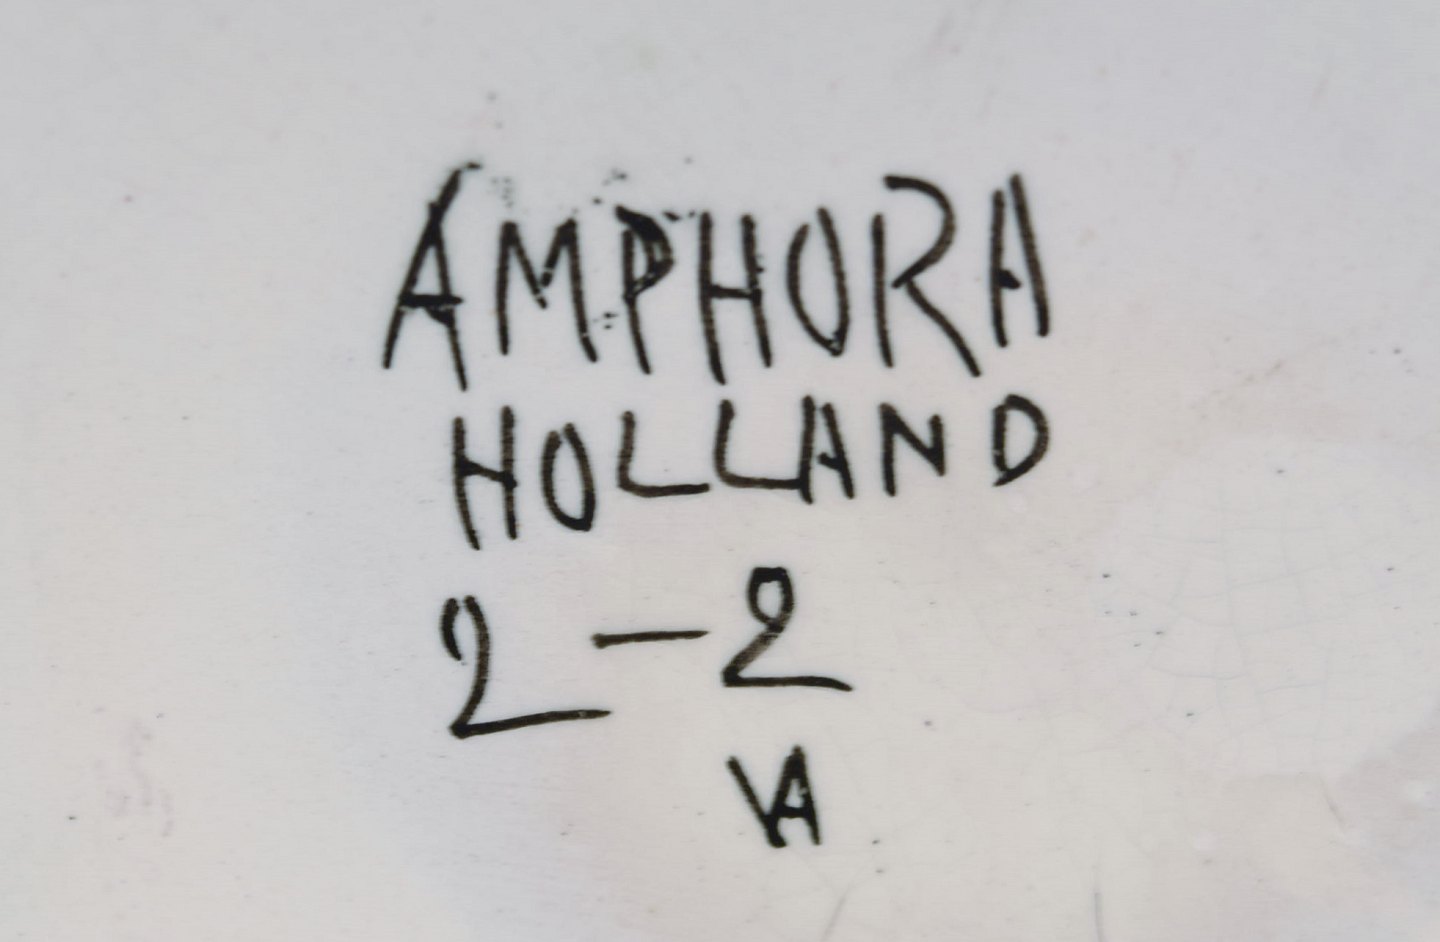 AMPHORA
HOLLAND
2-2
VA